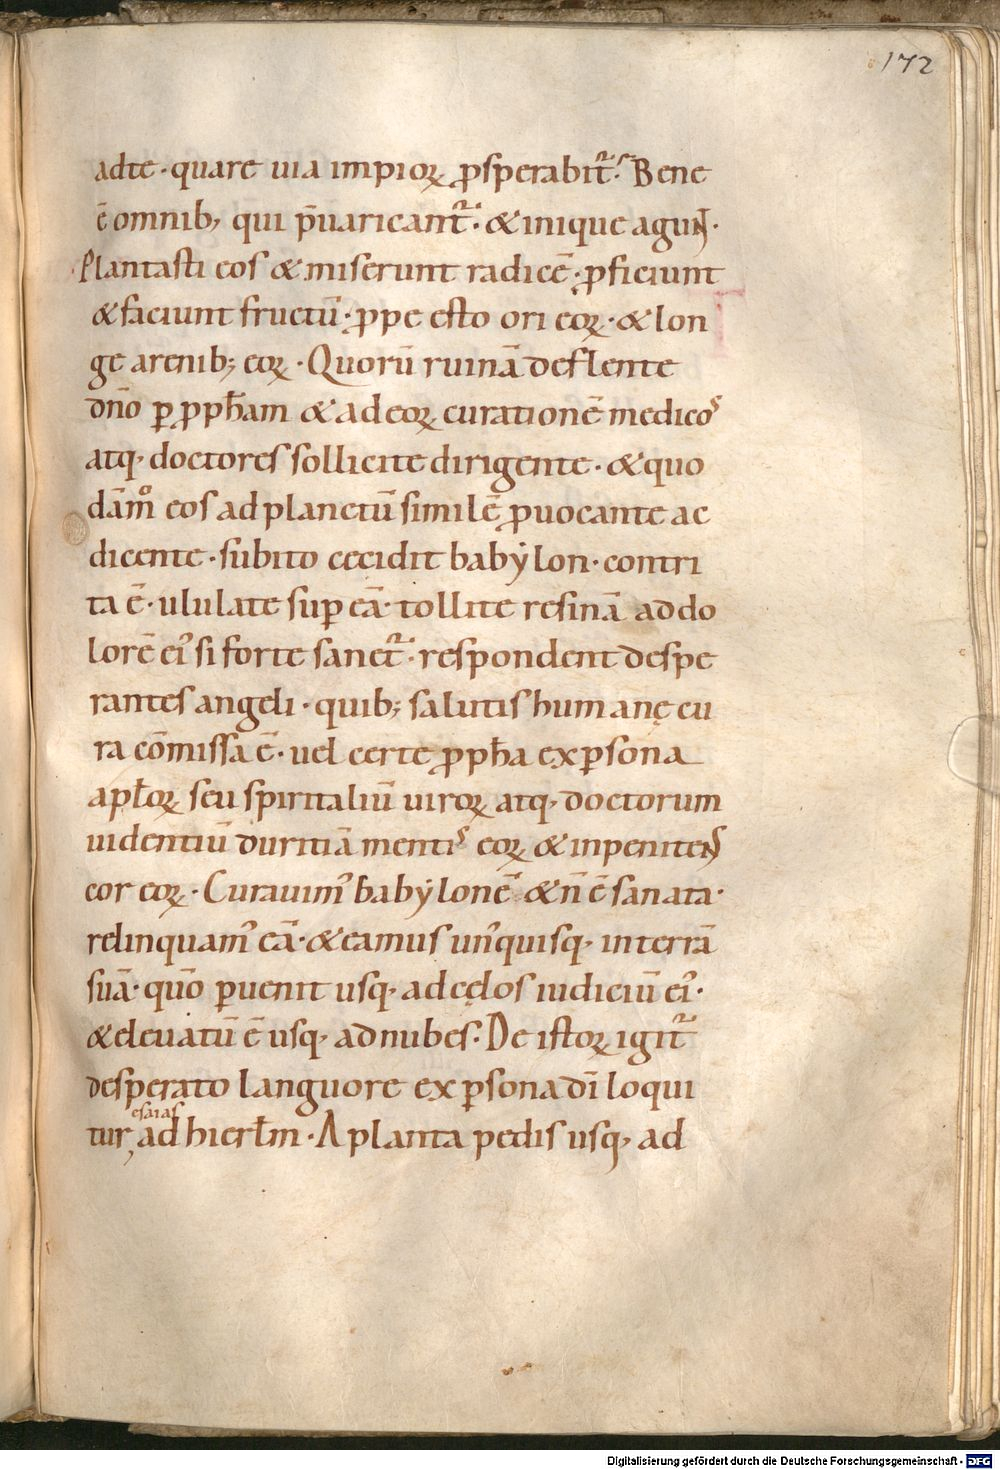 172
adte · quare uia impioꝝ ꝓsperabit᷑· Bene
ē omnib; qui p̄uaricant᷑ · & inique agunt ·
Plantasti eos & miserunt radicē · ꝓficiunt
& faciunt fructū · ꝓpe esto ori eoꝝ · & lon
ge a renib; eoꝝ · Quorū ruinā deflente
dn̄o ꝑ ꝓph̄am & ad eoꝝ curationē medicos
atq; doctores sollicite dirigente · & quo
dām̊ eos ad planctū similē ꝓuocante ac
dicente · subito cecidit babẏlon · contri
ta ē · ululate suꝑ eā · tollite resinā ad do
lorē ei᾽ si forte sanet᷑ · respondent despe
rantes angeli · quib; salutis humanę cu
ra cōmissa ē · uel certe ꝓph̄a ex ꝑsona
apl̄oꝝ seu spiritaliū uiroꝝ atq; doctorum
uidentiū duritiā mentis eoꝝ & inpenitens
cor eoꝝ · Curauim᾽ babẏlonē & n̄ ē sanata ·
relinquam᾽ eā · & eamus un᾽quisq; in terrā
suā · qūo ꝑuenit usq; ad cęlos iudiciū ei᾽ ·
& eleuatū ē usq; ad nubes · De istoꝝ igit᷑
desperato languore ex ꝑsona dī loqui
esaias
tur, ad hierl̄m · A planta pedis usq; ad
Digitalisierung gefördert durch die Deutsche Forschungsgemeinschaft - DFG